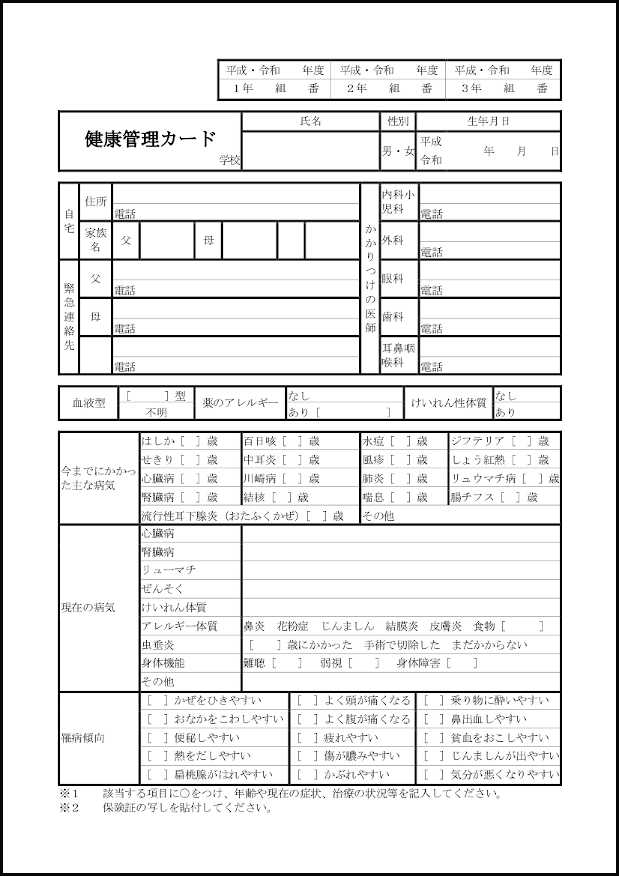 平成・令和　　年度　平成・令和　　年度　平成・令和　　年度
１年　　組　　番　２年　　組　　番　３年　　組　　番
健康管理カード
学校
氏名　性別　生年月日
男・女　平成　令和　　年　　月　　日
自宅
住所
電話
家族名　父　母
緊急連絡先
父
電話
母
電話
電話
かかりつけの医師
内科小児科
電話
外科
電話
眼科
電話
歯科
電話
耳鼻咽喉科
電話
血液型　［　　　］型　不明
薬のアレルギー　なし　あり［　　　　　　］
けいれん性体質　なし　あり
今までにかかった主な病気
はしか［　］歳　百日咳［　］歳　水痘［　］歳　ジフテリア［　］歳
せきり［　］歳　中耳炎［　］歳　風疹［　］歳　しょう紅熱［　］歳
心臓病［　］歳　川崎病［　］歳　肺炎［　］歳　リュウマチ病［　］歳
腎臓病［　］歳　結核［　］歳　喘息［　］歳　腸チフス［　］歳
流行性耳下腺炎（おたふくかぜ）［　］歳　その他
現在の病気
心臓病
腎臓病
リューマチ
ぜんそく
けいれん体質
アレルギー体質　鼻炎　花粉症　じんましん　結膜炎　皮膚炎　食物［　　　］
虫垂炎　［　　］歳にかかった　手術で切除した　まだかからない
身体機能　難聴［　　］　弱視［　　］　身体障害［　　］
その他
罹病傾向
［　］かぜをひきやすい　［　］よく頭が痛くなる　［　］乗り物に酔いやすい
［　］おなかをこわしやすい　［　］よく腹が痛くなる　［　］鼻出血しやすい
［　］便秘しやすい　［　］疲れやすい　［　］貧血をおこしやすい
［　］熱をだしやすい　［　］傷が膿みやすい　［　］じんましんが出やすい
［　］扁桃腺がはれやすい　［　］かぶれやすい　［　］気分が悪くなりやすい
※１　　該当する項目に○をつけ、年齢や現在の症状、治療の状況等を記入してください。
※２　　保険証の写しを貼付してください。